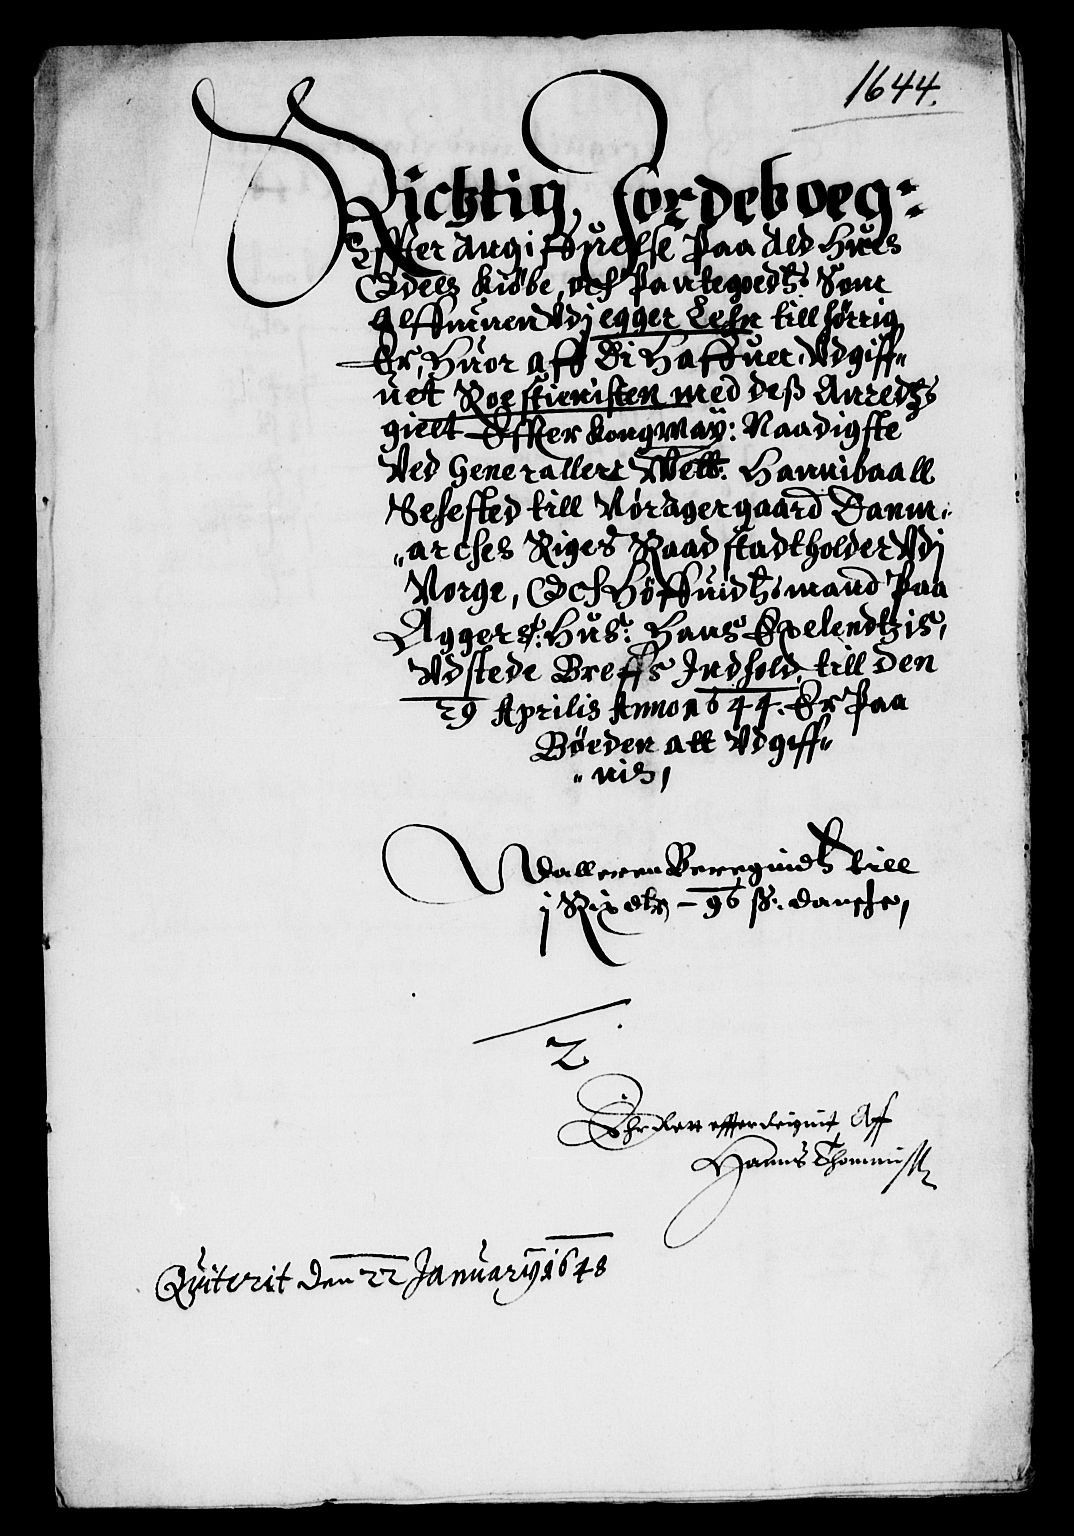 1644.
Richtig, Jordeboeg:
Effter Angiffuelsse Paa Ald Hues
Odels Kiøbe, och Pantegoedtz Som
Alffmuen Vdj egger Lehn till hørrig
Er, Huor aff Di Haffuer Vdgiff„
uet Roestienisten med deß Anredtz
gielt Effter kong May: Naadigste
Ved Generallert Welb: Hannibaall
Sehested till Nøragergaard Danm„
„arches Riges Raad stadtholder Vdj
Norge, Och Høffuidtzmand Paa
Aggers: Hus: Hans Exelendtzis,
Vdstede Breffs Indhold, till den
29 Aprilis Anno 1644. Er Paa
Bøeden att Vdgiff„
„nis,
Vdall eren Beregindtz till
j Rixdlr – 96 ß: dansche,
2
Ehrden effterkeignit Aff
Hanns Thommiss
Quiterit den 22 January 1648